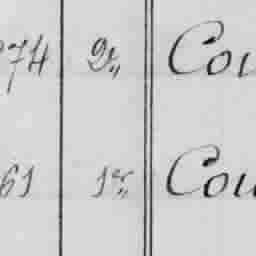 274 2e,, Cou
61 1er,, Cou